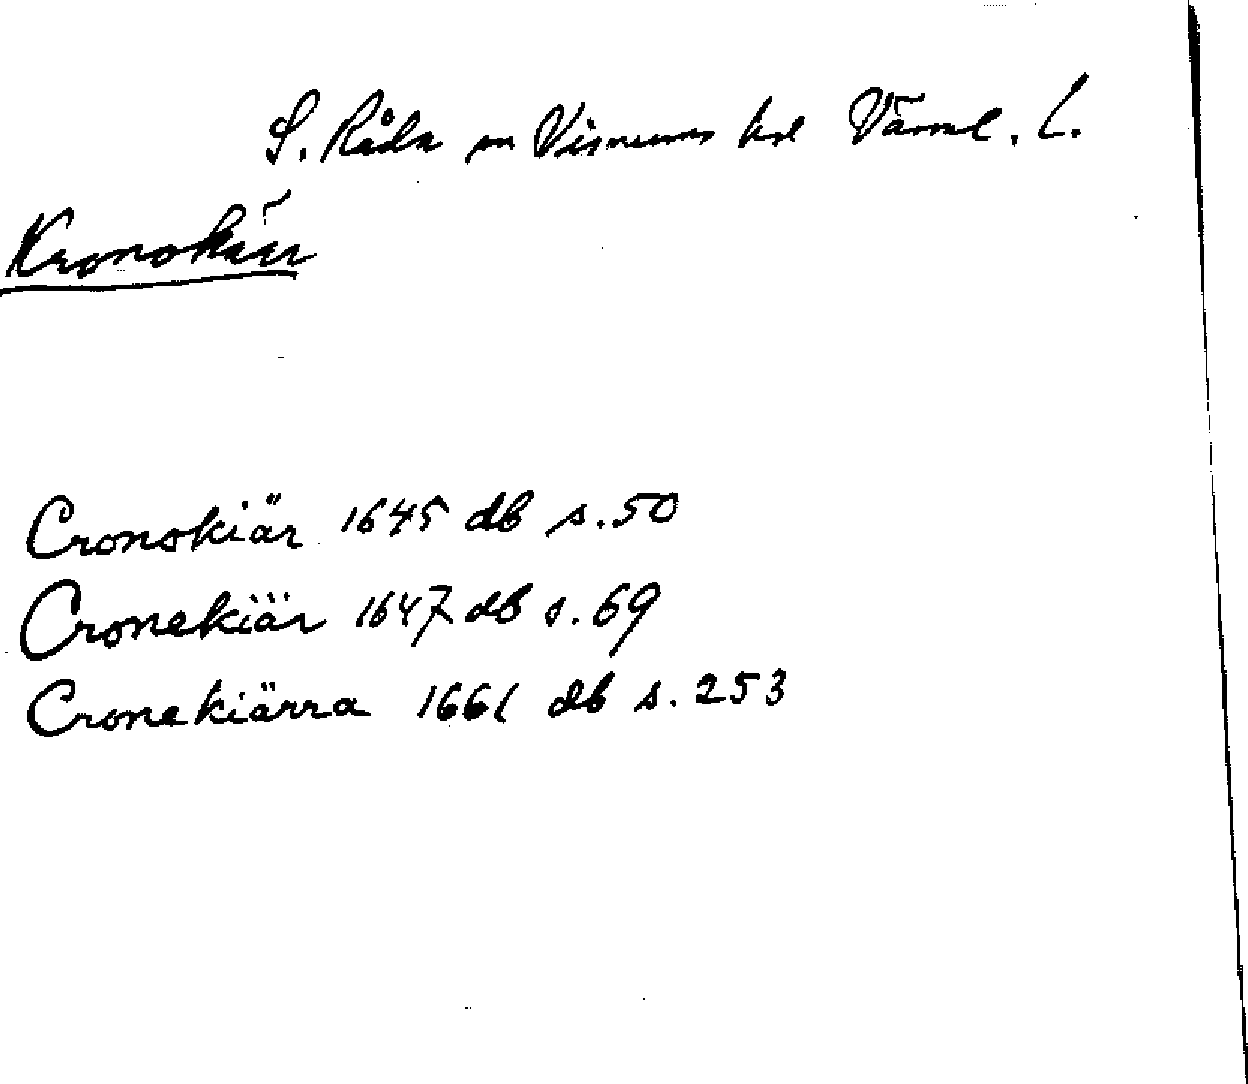 S. Råda sn Visnums hd Värml. l.
Kronokärr
Cronokiär 1645 db s. 50
Cronekiär 1647 db s. 69
Cronekiärra 1661 db s. 253